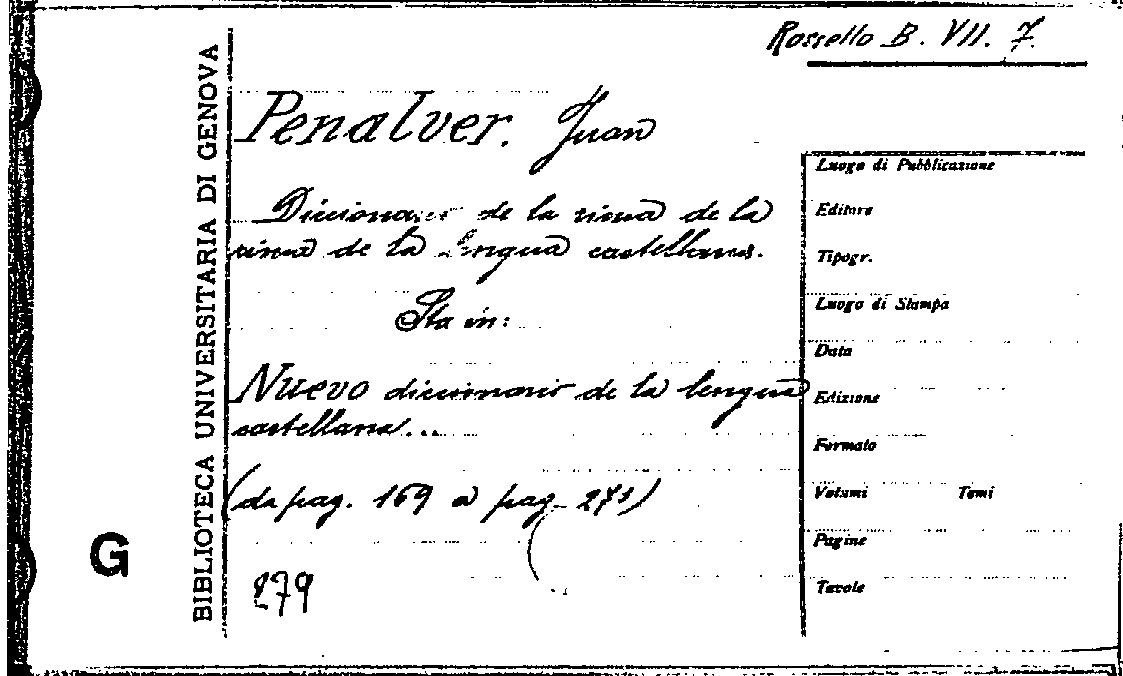 Rossello B. VII. 7.
BIBLIOTECA UNIVERSITARIA DI GENOVA
Penalver. Juan
Diccionario de la rima de la
rima de la lengua castellana.
Sta in:
Nuevo diccionario de la lengua
castellana...
(da pag. 169 a pag. 271)
279
G
Luogo di Pubblicazione
Editore
Tipogr.
Luogo di Stampa
Data
Edizione
Formato
Volumi Tomi
Pagine
Tavole